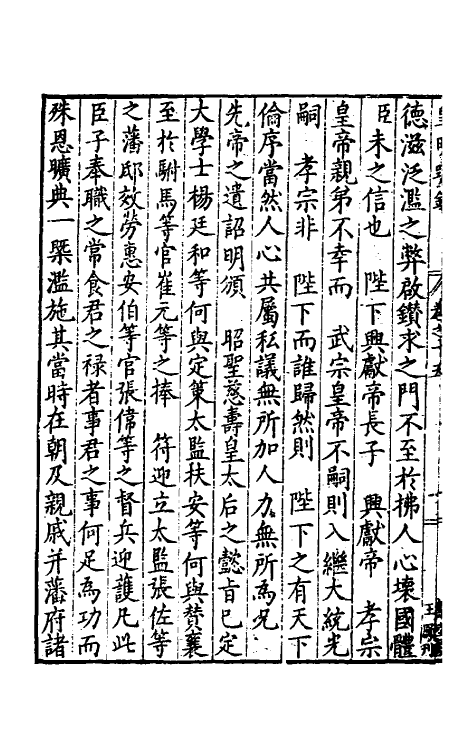 德滋泛濫之弊啟鑚求之門不至於拂人心壞國體
臣未之信也　陛下興獻帝長子　興獻帝　孝宗
皇帝親弟不幸而　武宗皇帝不嗣則入繼大統光
嗣　孝宗非　陛下而誰歸然則　陛下之有天下
倫序當然人心共属私議無所加人力無所為况
先帝之遺詔明頒　昭聖慈壽皇太后之懿旨已定
大學士楊廷和等何與定策太監扶安等何與賛襄
至於駙馬等官崔元等之捧　符迎立太監張佐等
之藩邸效勞惠安伯等官張偉等之督兵迎護凡此
臣子奉職之常食君之禄者事君之事何足為功而
殊恩曠典一槩濫施其當時在朝及親戚并藩府諸